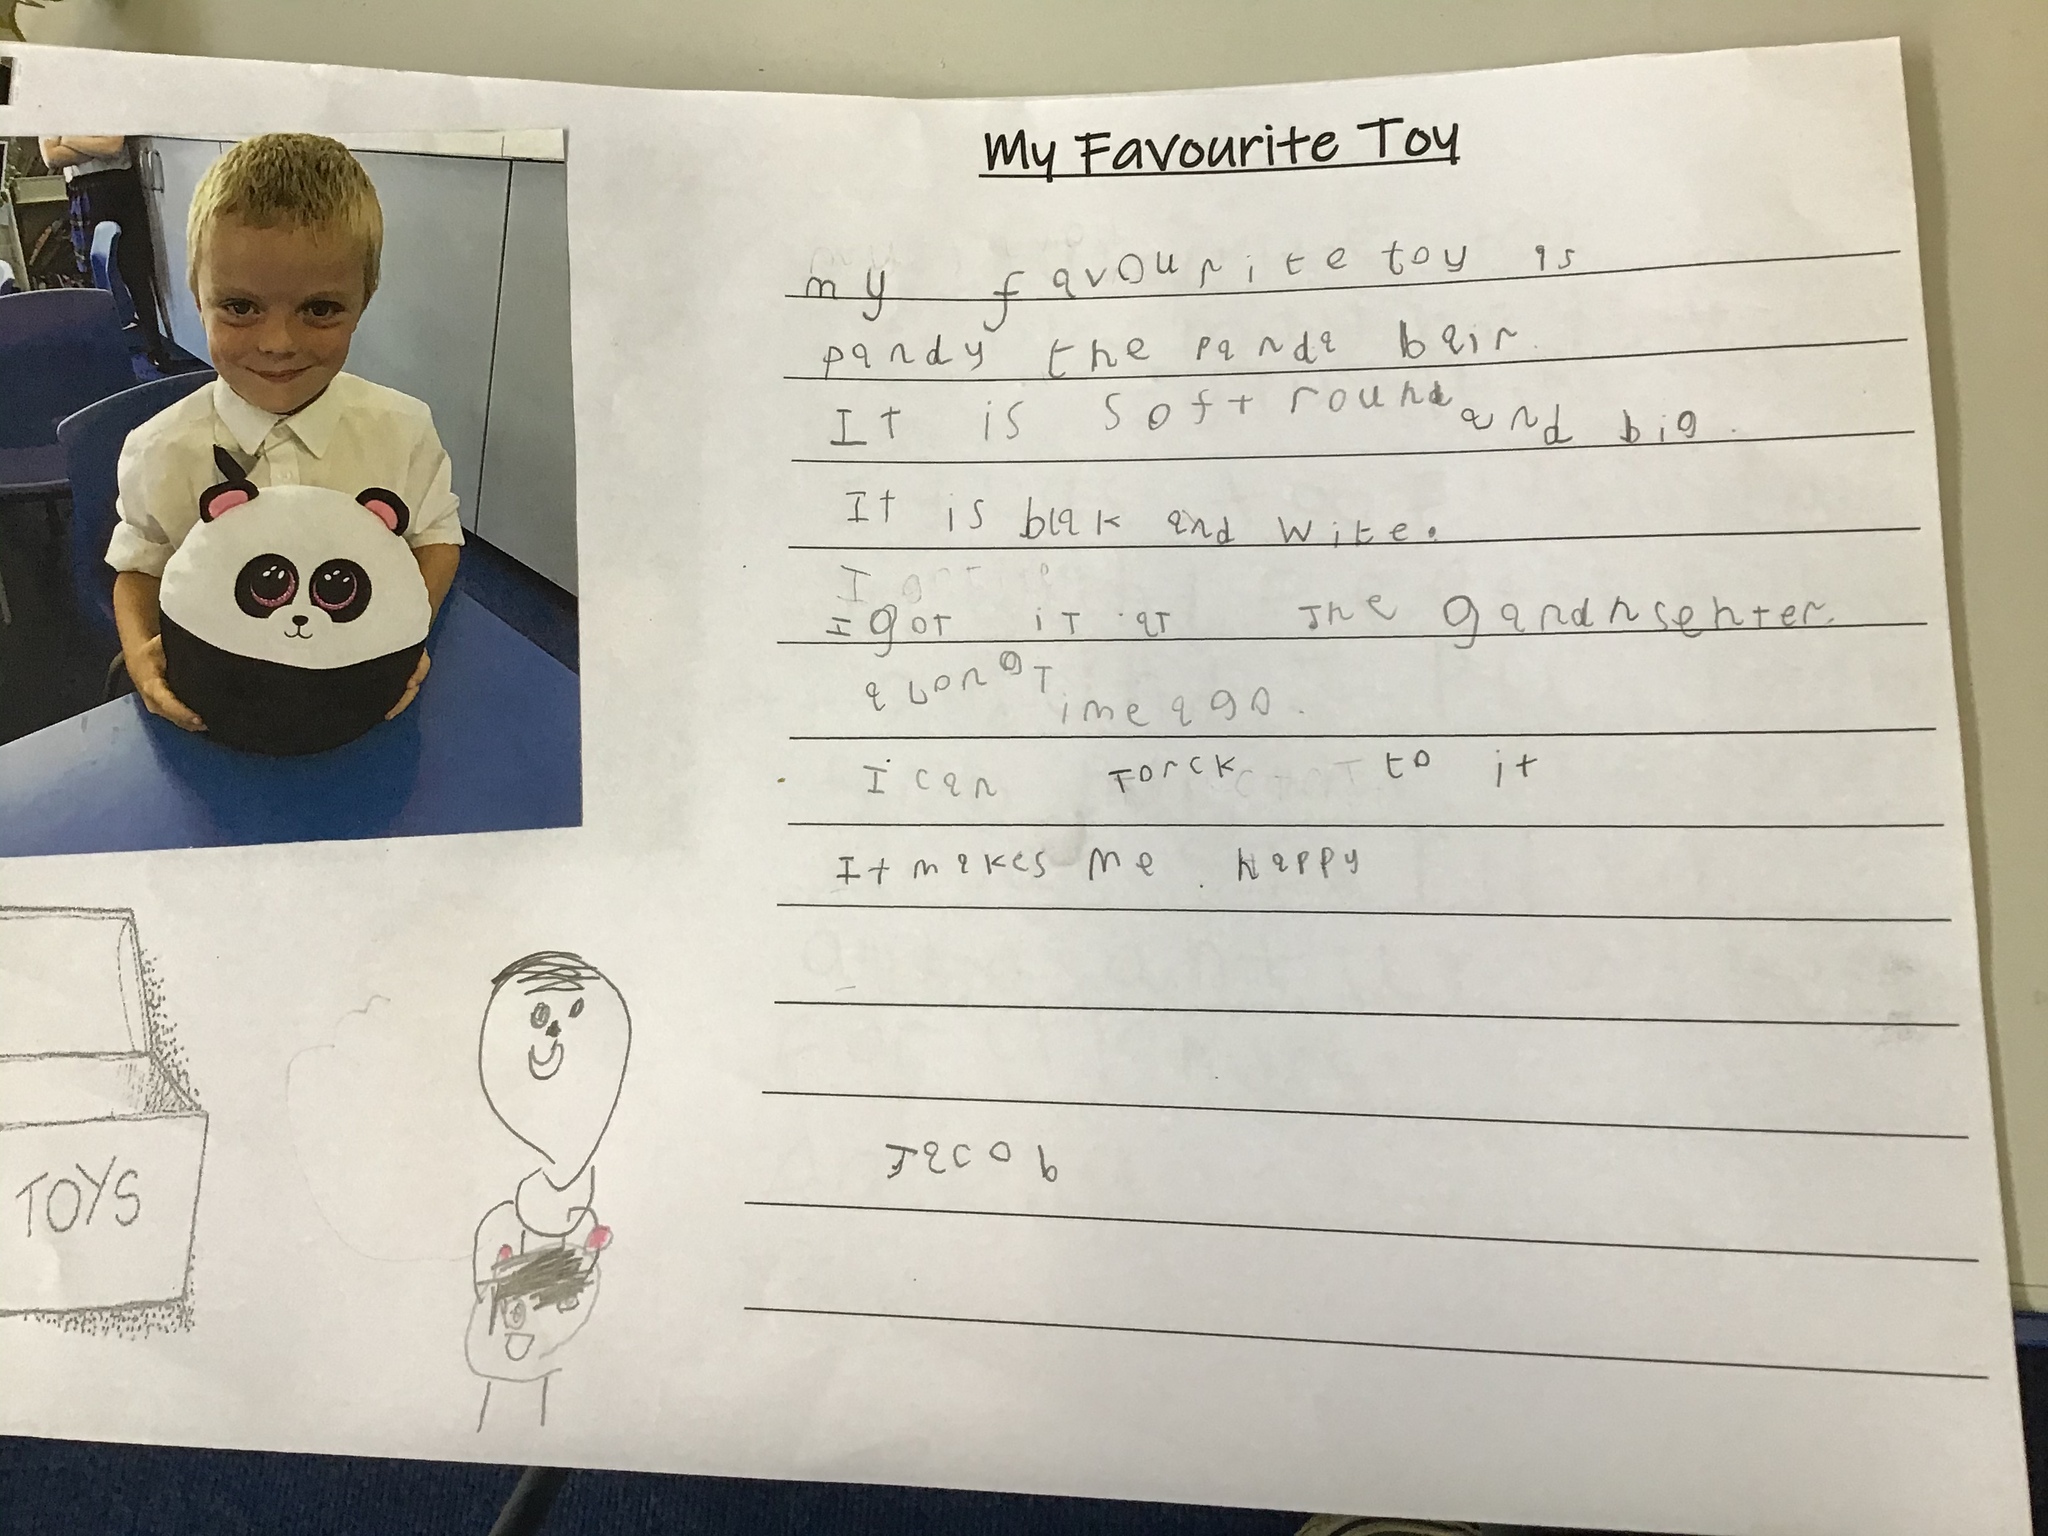 My Favourite Toy
my favourite toy is
pandy the panda bair.
It is soft round and big.
It is blak and wite.
I got it at the gandnsenter.
a long time ago.
I can torck to it
It makes me happy
Jacob
TOYS